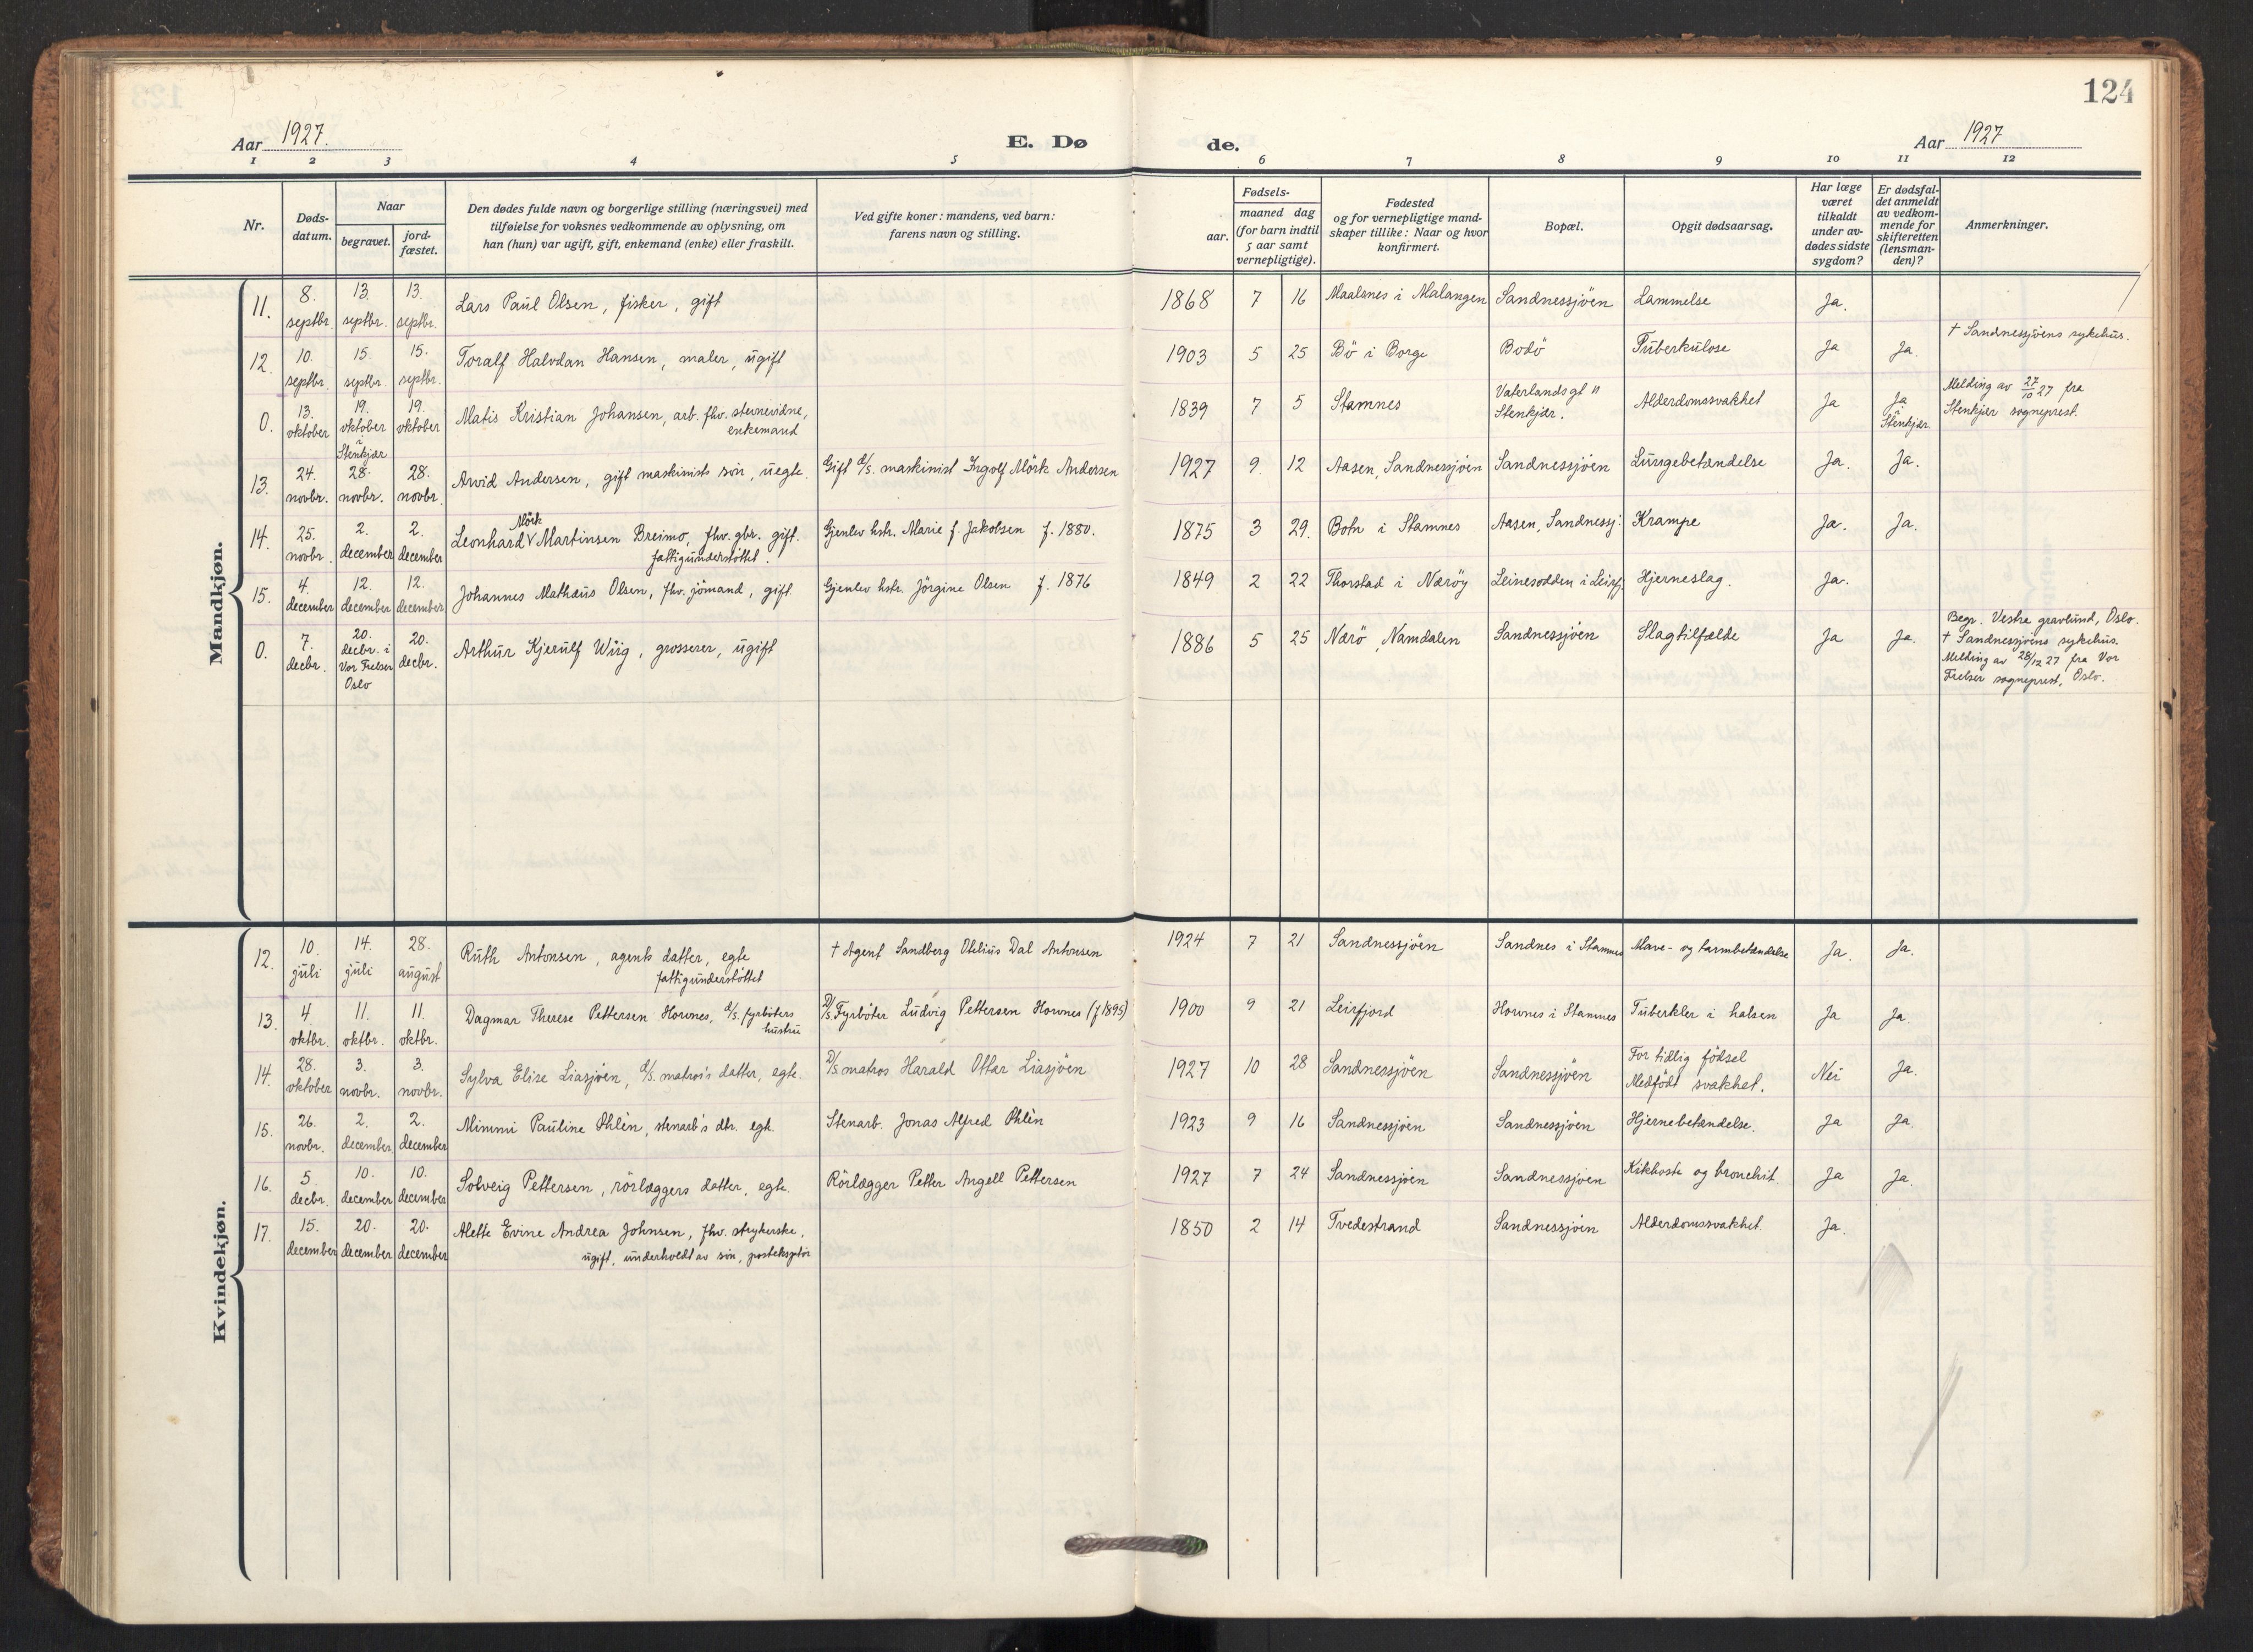 124
Aar 1927. E. Dø de. Aar 1927
1 2 3 4 5 6 7 8 9 10 11 12
Nr.
Døds-datum.
Naar
begravet.
jord-fæstet.
Den dødes fulde navn og borgerlige stilling (næringsvei) med
tilføielse for voksnes vedkommende av oplysning, om
han (hun) var ugift, gift, enkemand (enke) eller fraskilt.
Ved gifte koner: mandens, ved barn:
farens navn og stilling.
Fødsels-
aar.
maaned dag
(for barn indtil
5 aar samt
vernepligtige).
Fødested
og for vernepligtige mand-
skaper tillike: Naar og hvor
konfirmert.
Bopæl.
Opgit dødsaarsag.
Har læge
været
tilkaldt
under av-
dødes sidste
sygdom?
Er dødsfal-
det anmeldt
av vedkom-
mende for
skifteretten
(lensman-
den)?
Anmerkninger.
Mandkjøn.
11. 8. septbr. 13. septbr. 13. septbr. Lars Paul Olsen, fisker, gift 1868 7 16 Maalsnes i Malangen Sandnessjöen Lammelse Ja.
12. 10. septbr. 15. septbr. 15. septbr. Toralf Halvdan Hansen, maler, ugift 1903 5 25 Bö i Borge Bodö Tuberkulose Ja Ja. † Sandnessjöens sykehus.
0. 13. oktober 19. oktober i Stenkjær 19. oktober Matis Kristian Johansen, arb. fhv. stevnevidne, enkemand 1839 7 5 Stamnes Vaterlandsgt 11 Stenkjær. Alderdomssvakhet Ja Ja i Stenkjær Melding av 27/10 27 fra Stenkjær sogneprest.
13. 24. novbr. 28. novbr. 28. novbr Arvid Andersen, gift maskinists sön, uegte. Gift d/s. maskinist Ingolf Mörk Andersen 1927 9. 12 Aasen, Sandnessjöen Sandnessjöen Lungebetændelse Ja. Ja.
14. 25. novbr. 2. december 2. december Leonhard Mörk Martinsen Breimo, fhv. gbr. gift. fattigunderstöttet. Gjenlev hstr. Marie f. Jakobsen f. 1880. 1875 3 29. Botn i Stamnes Aasen, Sandnessj. Krampe Ja. Ja.
15. 4. december 12. december 12. december Johannes Mathæus Olsen, fhv. jömand, gift. Gjenlev hstr. Jörgine Olsen f. 1876 1849 2 22 Thorstad i Næröy Leinesodden i Leirfj. Hjerneslag. Ja.
0. 7. decbr. 20. decbr. i Vor Frelser Oslo 20. decbr. Arthur Kjerulf Wiig, grosserer, ugift 1886 5 25 Nærö, Namdalen Sandnessjöen Slagtilfælde Ja Ja. Begr. Vestre gravlund, Oslo. † Sandnessjöens sykehus. Melding av 28/12 27 fra Vor Frelser sogneprest, Oslo.
Kvindekjøn.
12. 10. juli 14. juli 28. august Ruth Antonsen, agents datter, egte fattigunderstöttet † Agent Sandberg Otelius Dal Antonsen 1924 7 21 Sandnessjöen Sandnes i Stamnes Mave- og tarmbetændelse Ja. Ja.
13. 4. oktbr. 11. oktbr. 11. oktbr. Dagmar Therese Pettersen Hovnes, d/s. fyrböters hustru D/s. Fyrböter Ludvig Pettersen Hovnes (f 1895) 1900 9 21 Leirfjord Hovnes i Stamnes Tuberkler i halsen Ja Ja.
14. 28. oktober 3. novbr. 3. novbr. Sylva Elise Liasjöen, d/s. matros's datter, egte. D/s matros Harald Ottar Liasjöen 1927 10 28 Sandnessjöen Sandnessjöen For tidlig födsel Medfödt svakhet. Nei Ja.
15. 26. novbr. 2. december. 2. december Mimmi Pauline Ohlèn, stenarb's dtr. egte. Stenarb. Jonas Alfred Ohlèn 1923 9 16 Sandnessjöen Sandnessjöen Hjernebetændelse. Ja Ja.
16. 5. decbr. 10. december 10. december Solveig Pettersen, rörlæggers datter, egte. Rörlægger Petter Angell Pettersen 1927 7 24 Sandnessjöen Sandnessjöen Kikhoste og bronchit. Ja Ja.
17. 15. december 20. december 20. december Alette Evine Andrea Johnsen, fhv. strykerske, ugift, underholdt av sön, posteksptör 1850 2 14 Tvedestrand Sandnessjöen Alderdomssvakhet. Ja.